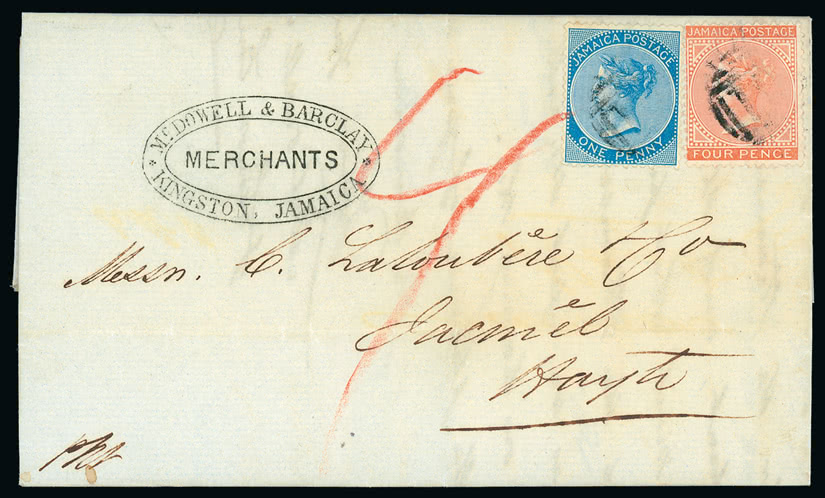 JAMAICA POSTAGE
ONE PENNY
JAMAICA POSTAGE
FOUR PENCE
McDOWELL & BARCLAY
MERCHANTS
KINGSTON, JAMAICA
Messrs. C. Laloubère & Co
Jacmèl
Hayti